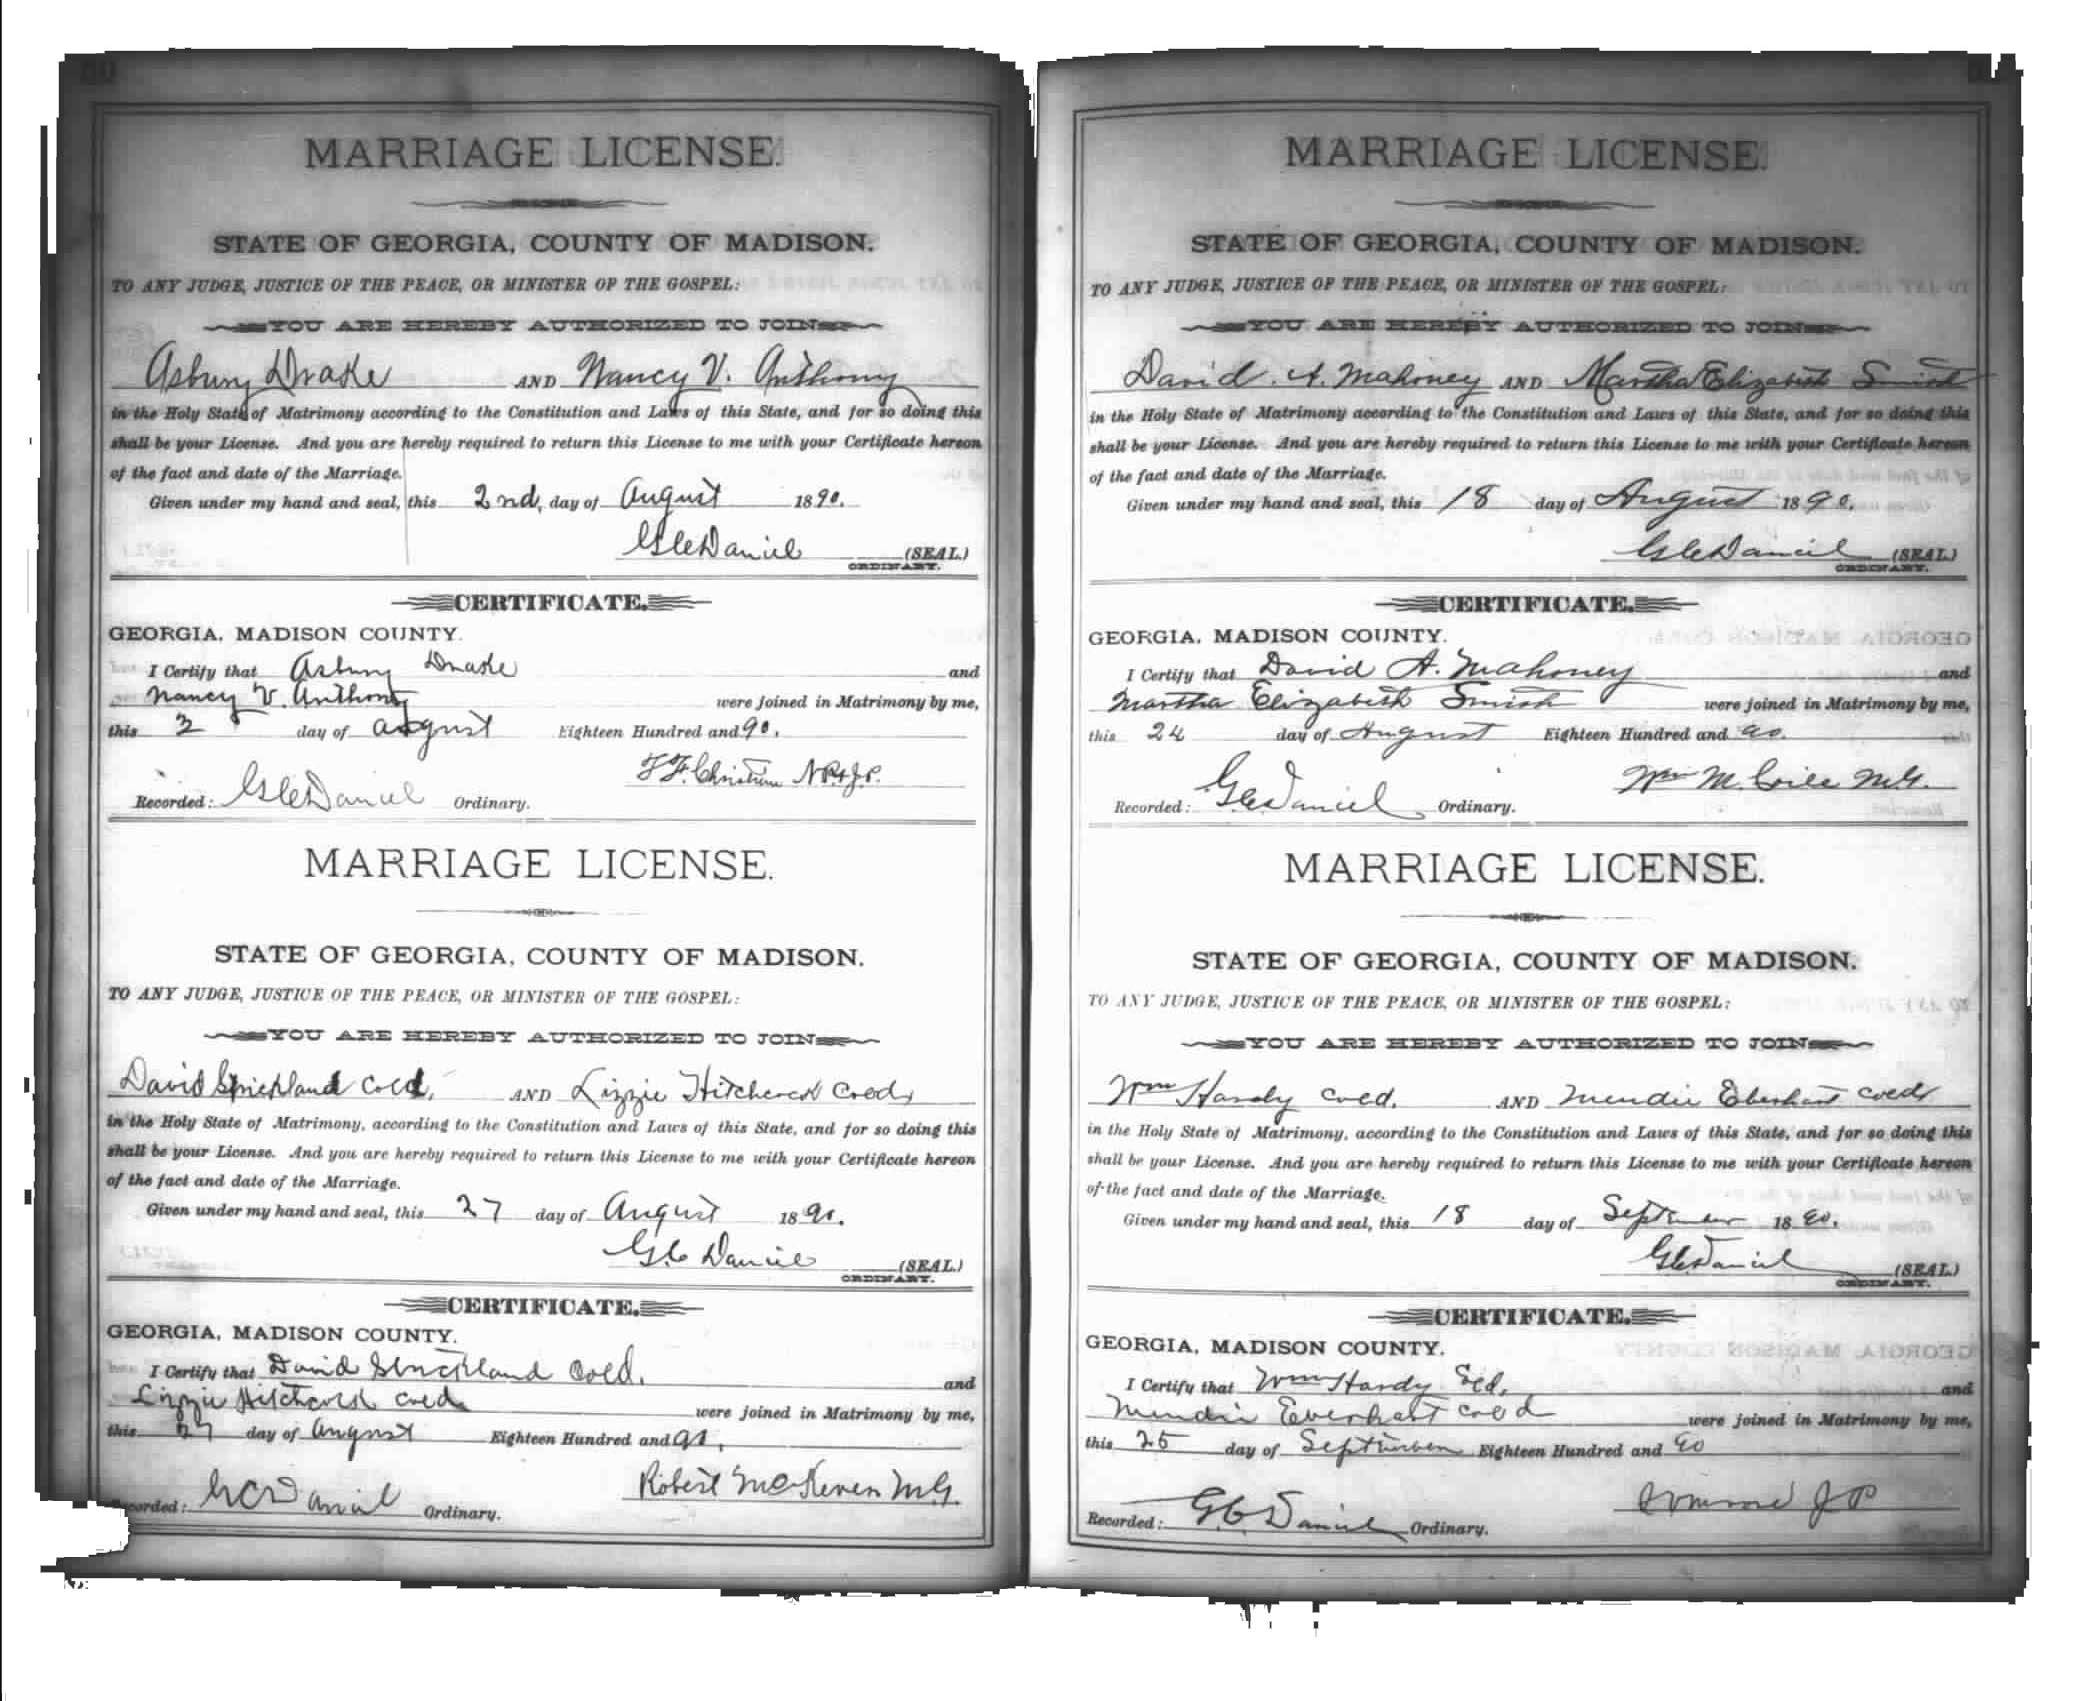 MARRIAGE LICENSE.
STATE OF GEORGIA, COUNTY OF MADISON.
TO ANY JUDGE, JUSTICE OF THE PEACE, OR MINISTER OF THE GOSPEL:
YOU ARE HEREBY AUTHORIZED TO JOIN
Asbury Drake AND Nancy V. Anthony
in the Holy State of Matrimony according to the Constitution and Laws of this State, and for so doing this
shall be your License. And you are hereby required to return this License to me with your Certificate hereon
of the fact and date of the Marriage.
Given under my hand and seal, this 2nd, day of August 1890.
G C Daniel (SEAL)
ORDINARY.
CERTIFICATE.
GEORGIA, MADISON COUNTY.
I Certify that Asbury Drake and
Nancy V. Anthony were joined in Matrimony by me,
this 2 day of August Eighteen Hundred and 90.
N P & J.P.
Recorded: G C Daniel Ordinary.
MARRIAGE LICENSE.
STATE OF GEORGIA, COUNTY OF MADISON.
TO ANY JUDGE, JUSTICE OF THE PEACE, OR MINISTER OF THE GOSPEL:
YOU ARE HEREBY AUTHORIZED TO JOIN
David Strickland Cold, AND Lizzie Hitchcock Cold,
in the Holy State of Matrimony, according to the Constitution and Laws of this State, and for so doing this
shall be your License. And you are hereby required to return this License to me with your Certificate hereon
of the fact and date of the Marriage.
Given under my hand and seal, this 27 day of August 1890.
G C Daniel (SEAL)
ORDINARY.
CERTIFICATE.
GEORGIA, MADISON COUNTY.
I Certify that David Strickland Cold. and
Lizzie Hitchcock Cold were joined in Matrimony by me,
this 27 day of August Eighteen Hundred and
Robert M.G.
Recorded: G C Daniel Ordinary.
MARRIAGE LICENSE.
STATE OF GEORGIA, COUNTY OF MADISON.
TO ANY JUDGE, JUSTICE OF THE PEACE, OR MINISTER OF THE GOSPEL:
YOU ARE HEREBY AUTHORIZED TO JOIN
David A. Mahoney AND Martha Elizabeth Smith
in the Holy State of Matrimony according to the Constitution and Laws of this State, and for so doing this
shall be your License. And you are hereby required to return this License to me with your Certificate hereon
of the fact and date of the Marriage.
Given under my hand and seal, this 18 day of August 1890.
G C Daniel (SEAL)
ORDINARY.
CERTIFICATE.
GEORGIA, MADISON COUNTY.
I Certify that David A. Mahoney and
Martha Elizabeth Smith were joined in Matrimony by me,
this 24 day of August Eighteen Hundred and 90.
Wm M. M.G.
Recorded: G C Daniel Ordinary.
MARRIAGE LICENSE.
STATE OF GEORGIA, COUNTY OF MADISON.
TO ANY JUDGE, JUSTICE OF THE PEACE, OR MINISTER OF THE GOSPEL:
YOU ARE HEREBY AUTHORIZED TO JOIN
Wm Hardy Cold. AND Mendie Eberhart Cold
in the Holy State of Matrimony, according to the Constitution and Laws of this State, and for so doing this
shall be your License. And you are hereby required to return this License to me with your Certificate hereon
of the fact and date of the Marriage.
Given under my hand and seal, this 18 day of September 1890.
G C Daniel (SEAL)
ORDINARY.
CERTIFICATE.
GEORGIA, MADISON COUNTY.
I Certify that Wm Hardy Cld. and
Mendie Eberhart Cold were joined in Matrimony by me,
this 25 day of September Eighteen Hundred and 90
J P
Recorded: G. C. Daniel Ordinary.